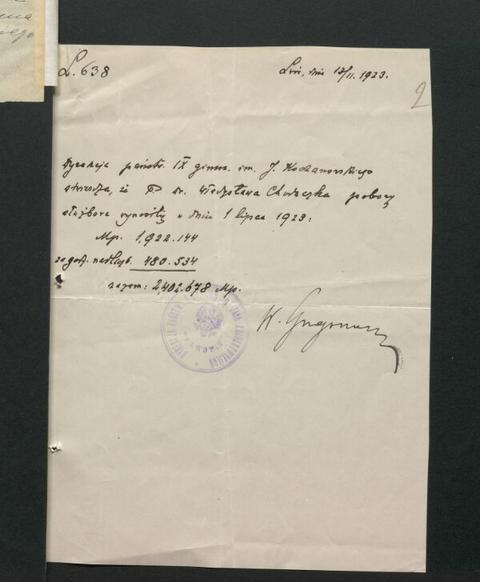 L. 638
Lwów, dnia 13/II. 1923.
2
Dyrekcja państw. IX gimn. im. J. Kochanowskiego
stwierdza, że P dr. Władysława pobory
służbowe wynosiły w dniu 1 lipca 1923:
Mp. 1,922.144
za godz. nadlicz. 480.534
razem: 2,402.678 Mp.
K.